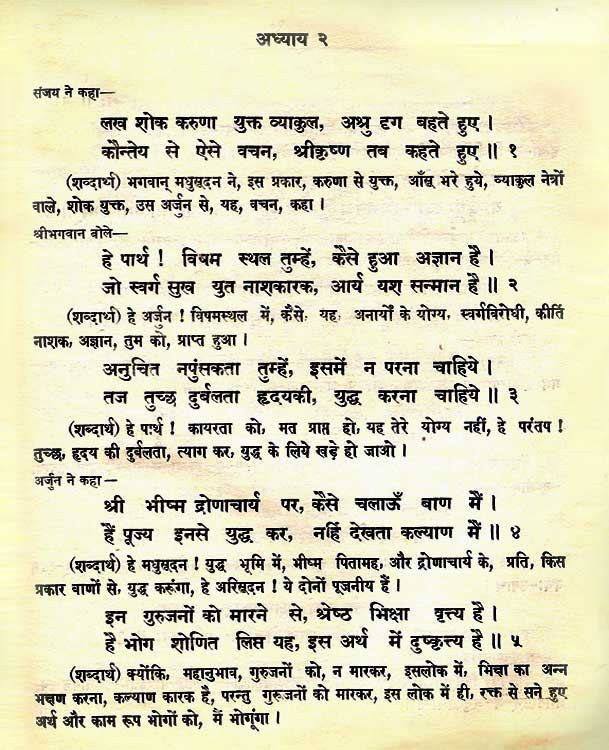 अध्याय २
संजय ने कहा—
लख शोक करुणा युक्त व्याकुल, अश्रु दृग बहते हुए ।
कौन्तेय से ऐसे वचन, श्रीकृष्ण तब कहते हुए ॥ १
(शब्दार्थ) भगवान् मधुसूदन ने, इस प्रकार, करुणा से युक्त, आँसू भरे हुये, व्याकुल नेत्रों
वाले, शोक युक्त, उस अर्जुन से, यह, वचन, कहा ।
श्रीभगवान बोले—
हे पार्थ ! विषम स्थल तुम्हें, कैसे हुआ अज्ञान है ।
जो स्वर्ग सुख युत नाशकारक, आर्य यश सन्मान है ॥ २
(शब्दार्थ) हे अर्जुन ! विषमस्थल में, कैसे, यह, अनार्यों के योग्य, स्वर्गविरोधी, कीर्ति
नाशक, अज्ञान, तुम को, प्राप्त हुआ ।
अनुचित नपुंसकता तुम्हें, इसमें न परना चाहिये ।
तज तुच्छ दुर्बलता हृदयकी, युद्ध करना चाहिये ॥ ३
(शब्दार्थ) हे पार्थ ! कायरता को, मत प्राप्त हो, यह तेरे योग्य नहीं, हे परंतप !
तुच्छ, हृदय की दुर्बलता, त्याग कर, युद्ध के लिये खड़े हो जाओ ।
अर्जुन ने कहा—
श्री भीष्म द्रोणाचार्य पर, कैसे चलाऊँ बाण मैं ।
हैं पूज्य इनसे युद्ध कर, नहिं देखता कल्याण मैं ॥ ४
(शब्दार्थ) हे मधुसूदन ! युद्ध भूमि में, भीष्म पितामह, और द्रोणाचार्य के, प्रति, किस
प्रकार वाणों से, युद्ध करूंगा, हे अरिसूदन ! ये दोनों पूजनीय हैं ।
इन गुरुजनों को मारने से, श्रेष्ठ भिक्षा वृत्त्य है ।
है भोग शोणित लिप्त यह, इस अर्थ में दुष्कृत्त्य है ॥ ५
(शब्दार्थ) क्योंकि, महानुभाव, गुरुजनों को, न मारकर, इसलोक में, भिक्षा का अन्न
भक्षण करना, कल्याण कारक है, परन्तु गुरुजनों को मारकर, इस लोक में ही, रक्त से सने हुए
अर्थ और काम रूप भोगों को, मैं भोगूंगा ।